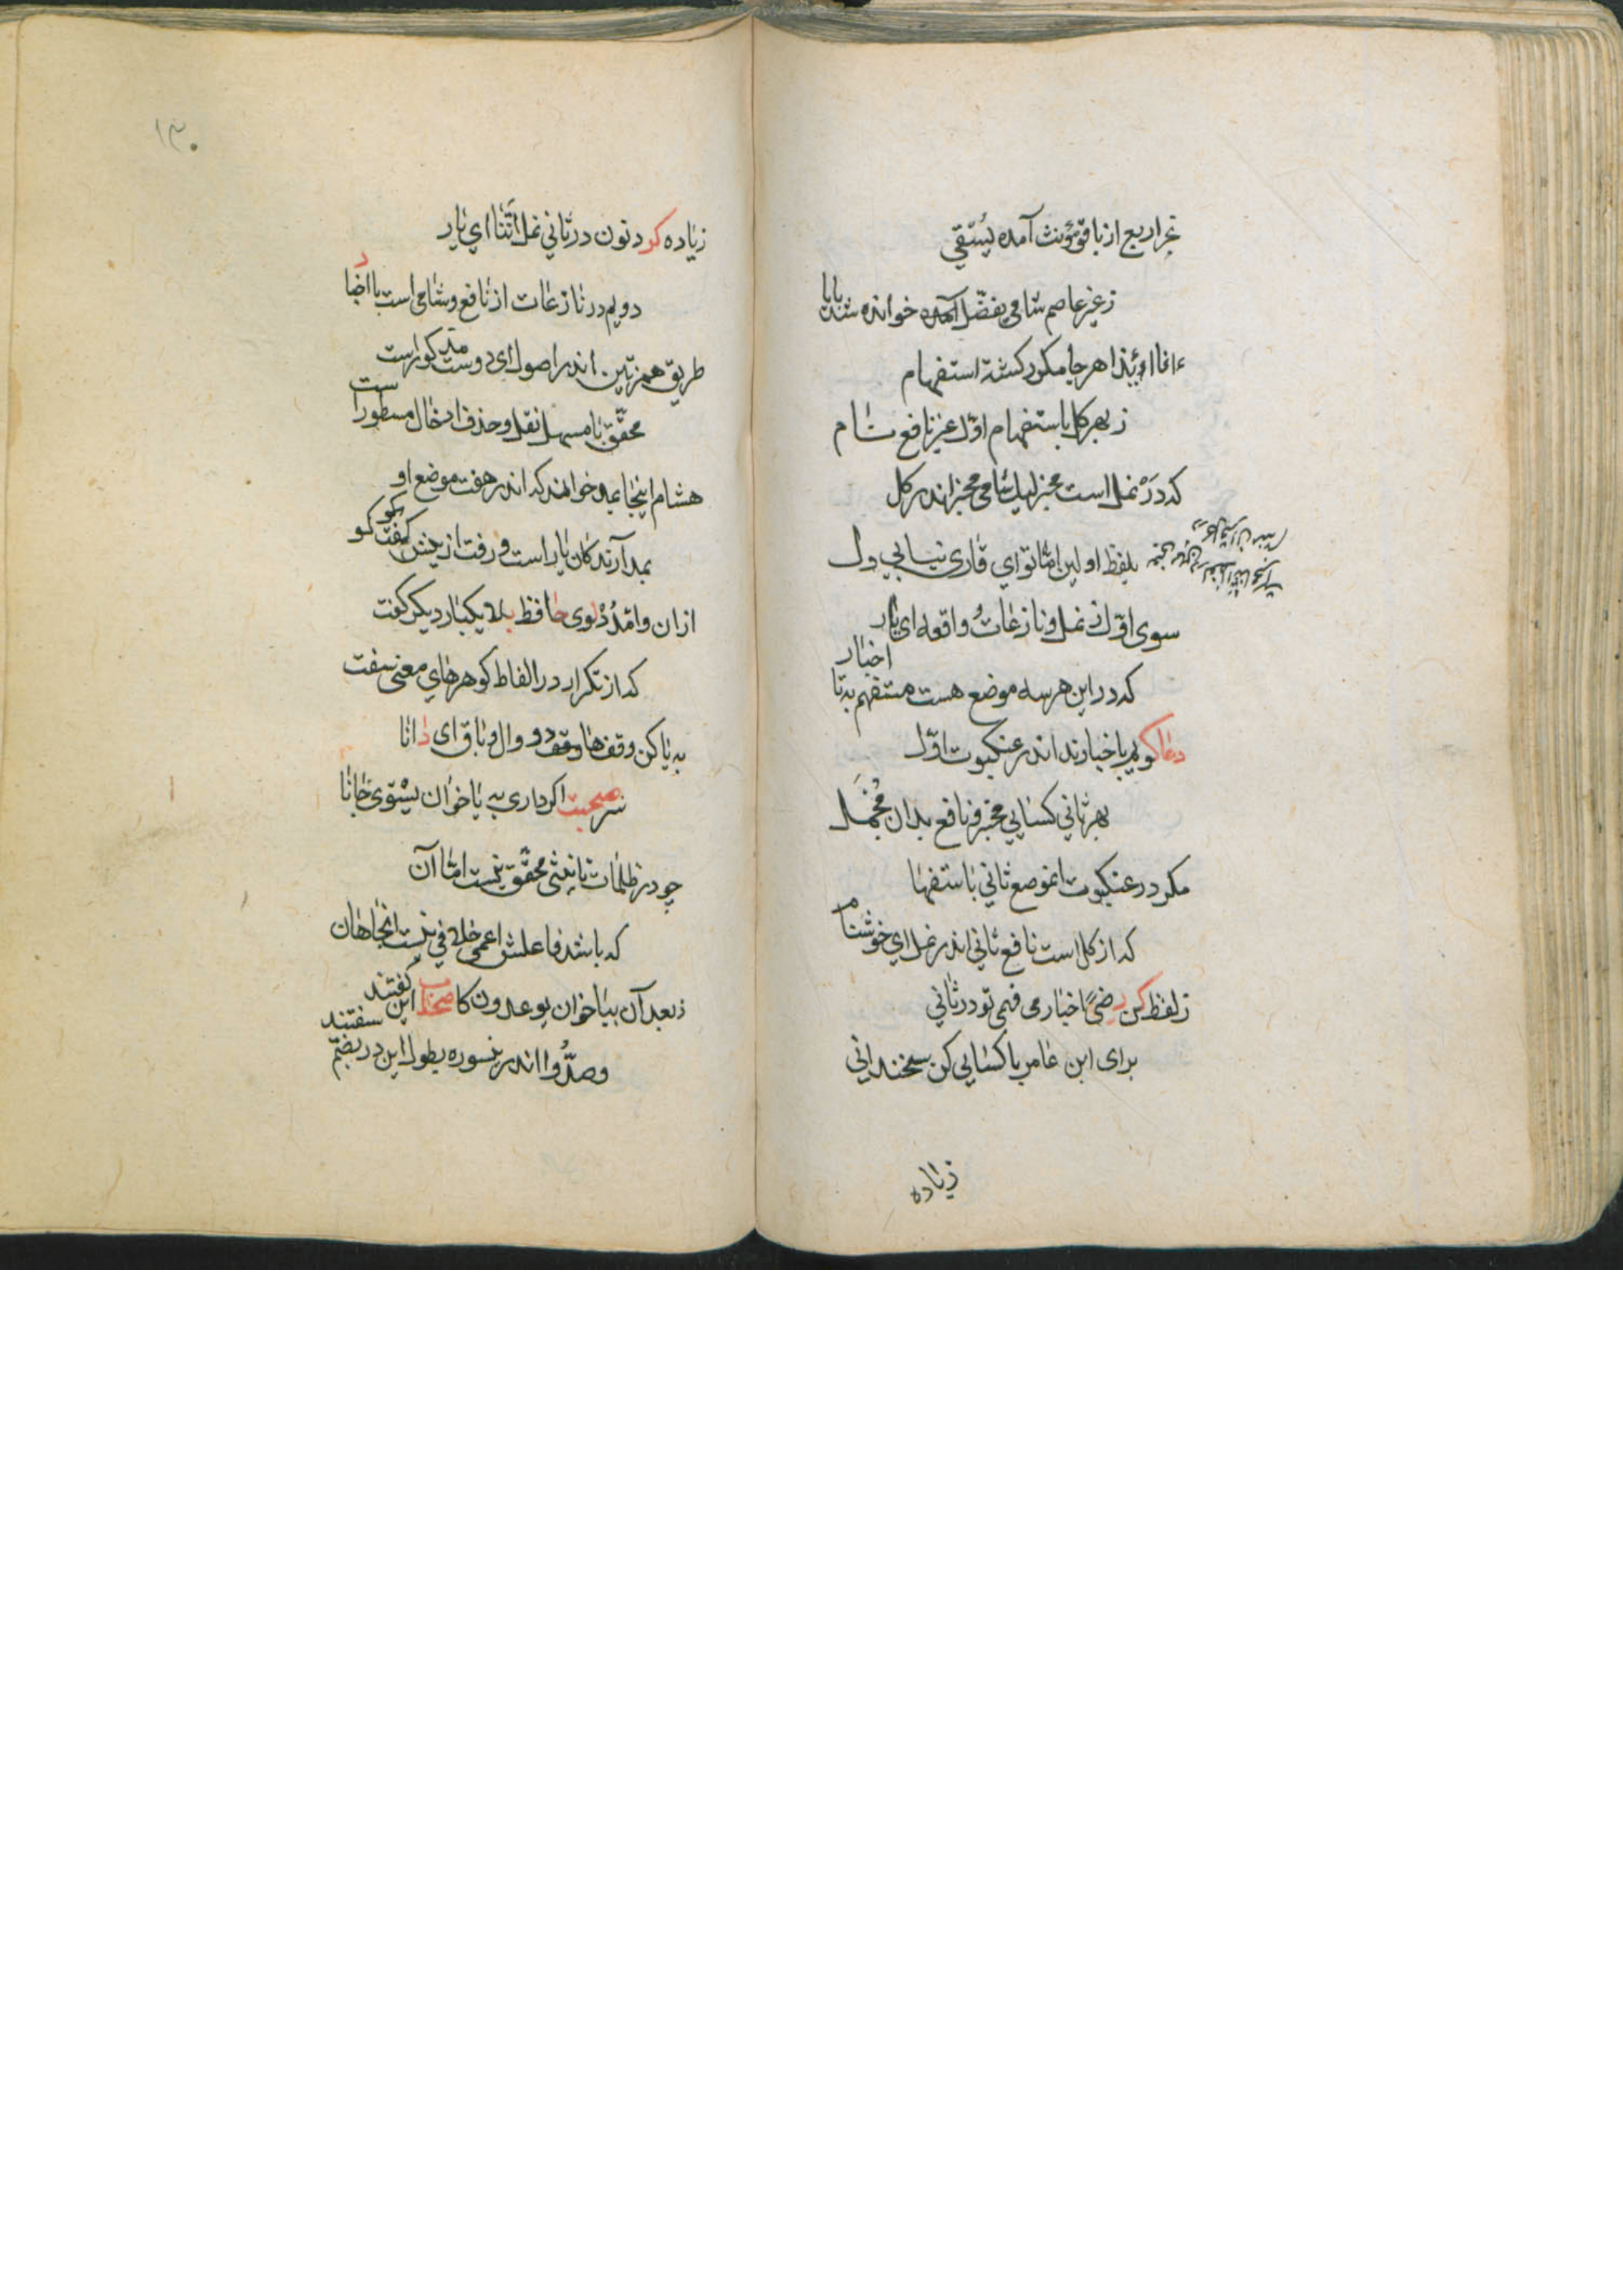 بجز اربع از باقی مؤنث آمده یُسْقی
ز غیر عاصم شامی یفضّل آمده خوانده شد بایا
ءاذا اءنذا هر جا مکرر کشته استفهام
ز بهر کل باستفهام اوّل غیر نافع شام
که دَرْ نمل است مخبر لیك شامی مخبر اندر کل
بلفظ اولین امّا تو ای قاری نیابی دل
سوی اوّل ز نمل و نازعاتُ واقعه ای یار
که در این هر سه موضع هست مستفهم به تا اخبار
دعا کویم باخبارند اندر عنکبوت اوّل
بهر ثانی کسایی مخبر و نافع بدان مُجْمَل
مکر در عنکبوت انموضع ثانی باستفها
که از کل است نافع ثانی اندر نمل ای خوشنام
ز لفظ کن رضیً اخبار می فهمی تو در ثانی
برای ابن عامر با کسایی کن سخندانی
زیاده
۱۳۰
زیاده کرد نون در ثانی نمل اَنَّنا ای یار
دویم در نازعات از نافع و شامی است با اخبار
طریق همزتین اندر اصول ای دوست مذکور است
محقّق با مسهل نقل و حذف ادخال مسطور است
هشام اینجا بمد خوانند که اندر هفت موضع او
بمد آرند کان یار است و رفت از پیش کفت کو
ازان وامْدُدْ لوی حافظ بلا یکبار دیکر کفت
که از تکرار در الفاظ کوهرهای معنی سفت
به یا کن وقف هاد وقف دو وال و باق ای دانا
سر صحبت اکر داری به یا خوان یسْتوی جانا
چو در ظلمات تانیثی محقّق نیست امّا آن
که باشد فاعلش اعمی خلافی نیست اینجا هان
ز بعد آن بیا خوان یوعدون کا صحاب این کفتند
وصدُّوا اندرین سوره بطول این در بضم سفتند